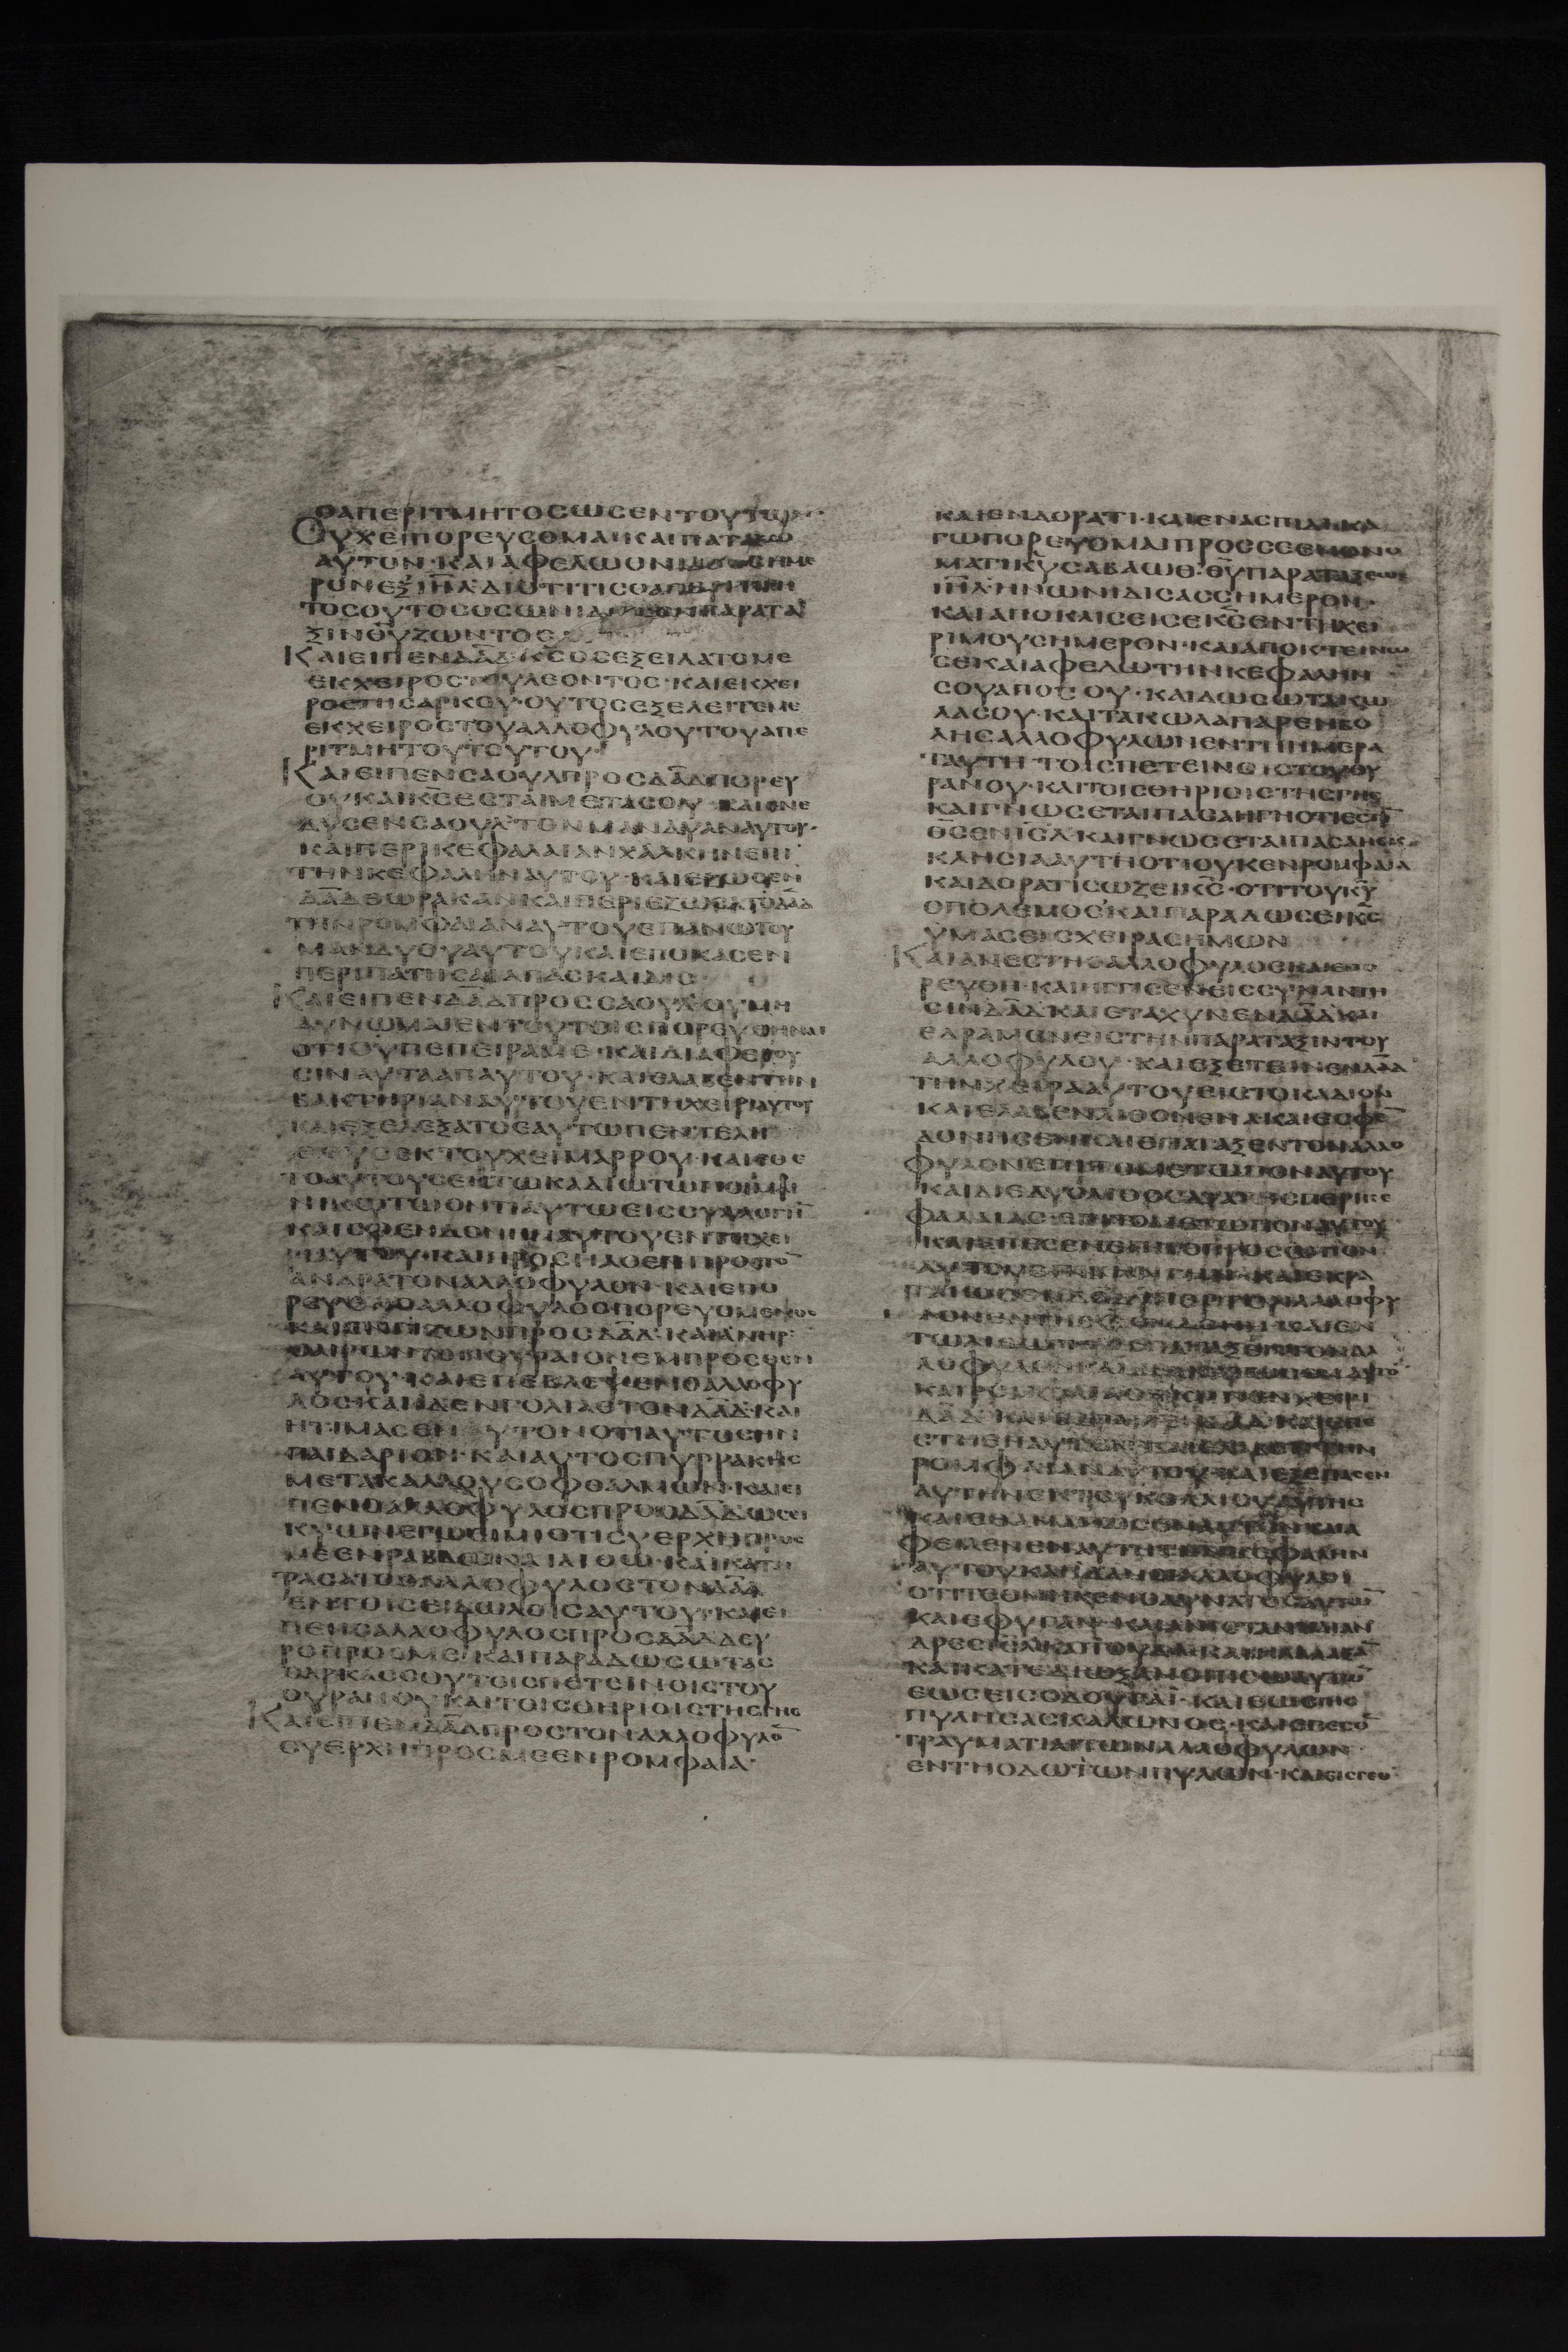 ΟΑΠΕΡΙΤΜΗΤΟΣ ΩΣ ΕΝ ΤΟΥΤΩΝ·
ΟΥΧΕΙ ΠΟΡΕΥΣΟΜΑΙ ΚΑΙ ΠΑΤΑΞΩ
ΑΥΤΟΝ· ΚΑΙ ΑΦΕΛΩ ΟΝΙΔΟΣ ΣΗΜΕ
ΡΟΝ ΕΞ ΙΗΛ· ΔΙΟΤΙ ΤΙΣ Ο ΑΠΕΡΙΤΜΗ
ΤΟΣ ΟΥΤΟΣ ΟΣ ΩΝΙΔΙΣΕΝ ΠΑΡΑΤΑ
ΞΙΝ ΘΥ ΖΩΝΤΟΣ
ΚΑΙ ΕΙΠΕΝ ΔΑΔ· ΚΣ ΟΣ ΕΞΕΙΛΑΤΟ ΜΕ
ΕΚ ΧΕΙΡΟΣ ΤΟΥ ΛΕΟΝΤΟΣ· ΚΑΙ ΕΚ ΧΕΙ
ΡΟΣ ΤΗΣ ΑΡΚΟΥ· ΟΥΤΟΣ ΕΞΕΛΕΙΤΕ ΜΕ
ΕΚ ΧΕΙΡΟΣ ΤΟΥ ΑΛΛΟΦΥΛΟΥ ΤΟΥ ΑΠΕ
ΡΙΤΜΗΤΟΥ ΤΟΥΤΟΥ·
ΚΑΙ ΕΙΠΕΝ ΣΑΟΥΛ ΠΡΟΣ ΔΑΔ ΠΟΡΕΥ
ΟΥ ΚΑΙ ΚΣ ΕΣΤΑΙ ΜΕΤΑ ΣΟΥ· ΚΑΙ ΕΝΕ
ΔΥΣΕΝ ΣΑΟΥΛ ΤΟΝ ΜΑΝΔΥΑΝ ΑΥΤΟΥ·
ΚΑΙ ΠΕΡΙΚΕΦΑΛΑΙΑΝ ΧΑΛΚΗΝ ΕΠΙ
ΤΗΝ ΚΕΦΑΛΗΝ ΑΥΤΟΥ· ΚΑΙ ΕΖΩΣΕΝ
ΔΑΔ ΘΩΡΑΚΑΝ ΚΑΙ ΠΕΡΙΕΖΩΣΑΤΟ ΔΑΔ
ΤΗΝ ΡΟΜΦΑΙΑΝ ΑΥΤΟΥ ΕΠΑΝΩ ΤΟΥ
ΜΑΝΔΥΟΥ ΑΥΤΟΥ ΚΑΙ ΕΠΟΚΑΣΕΝ
ΠΕΡΙΠΑΤΗΣΑΙ ΑΠΑΞ ΚΑΙ ΔΙΣ
ΚΑΙ ΕΙΠΕΝ ΔΑΔ ΠΡΟΣ ΣΑΟΥΛ ΟΥ ΜΗ
ΔΥΝΩΜΑΙ ΕΝ ΤΟΥΤΟΙΣ ΠΟΡΕΥΘΗΝΑΙ
ΟΤΙ ΟΥ ΠΕΠΕΙΡΑΜΕ· ΚΑΙ ΔΙΑΦΕΡΟΥ
ΣΙΝ ΑΥΤΑ ΑΠ ΑΥΤΟΥ· ΚΑΙ ΕΛΑΒΕΝ ΤΗΝ
ΒΑΚΤΗΡΙΑΝ ΑΥΤΟΥ ΕΝ ΤΗ ΧΕΙΡΙ ΑΥΤΟΥ
ΚΑΙ ΕΞΕΛΕΞΑΤΟ ΕΑΥΤΩ ΠΕΝΤΕ ΛΙ
ΕΚ ΤΟΥ ΧΕΙΜΑΡΡΟΥ· ΚΑΙ
ΤΟ ΑΥΤΟΥΣ ΕΝ ΤΩ ΚΑΔΙΩ ΤΩ ΠΟΙΜΕ
ΝΙΚΩ ΤΩ ΟΝΤΙ ΑΥΤΩ ΕΙΣ ΣΥΛΛΟΓΗ
ΚΑΙ ΣΦΕΝΔΟΝΗ ΑΥΤΟΥ ΕΝ ΤΗ ΧΕΙ
ΡΙ ΑΥΤΟΥ· ΚΑΙ ΠΡΟΣΗΛΘΕΝ ΠΡΟΣ ΤΟ
ΑΝΔΡΑ ΤΟΝ ΑΛΛΟΦΥΛΟΝ· ΚΑΙ ΕΠΟ
ΡΕΥΘΗ Ο ΑΛΛΟΦΥΛΟΣ ΠΟΡΕΥΟΜΕΝΟΣ
ΚΑΙ ΕΓΓΙΖΩΝ ΠΡΟΣ ΔΑΔ· ΚΑΙ ΑΝΗΡ
ΑΙΡΩΝ ΤΟ ΘΟΥΡΑΙΟΝ ΕΜΠΡΟΣΘΕΝ
ΑΥΤΟΥ· ΚΑΙ ΕΠΕΒΛΕΨΕΝ Ο ΑΛΛΟΦΥ
ΛΟΣ ΚΑΙ ΙΔΕΝ ΓΟΛΙΑΘ ΤΟΝ ΔΑΔ· ΚΑΙ
ΗΤΙΜΑΣΕΝ ΑΥΤΟΝ ΟΤΙ ΑΥΤΟΣ ΗΝ
ΠΑΙΔΑΡΙΟΝ· ΚΑΙ ΑΥΤΟΣ ΠΥΡΡΑΚΗΣ
ΜΕΤΑ ΚΑΛΛΟΥΣ ΟΦΘΑΛΜΩΝ· ΚΑΙ ΕΙ
ΠΕΝ Ο ΑΛΛΟΦΥΛΟΣ ΠΡΟΣ ΔΑΔ ΩΣΕΙ
ΚΥΩΝ ΕΓΩ ΕΙΜΙ ΟΤΙ ΣΥ ΕΡΧΗ ΠΡΟΣ
ΜΕ ΕΝ ΡΑΒΔΩ ΚΑΙ ΛΙΘΩ· ΚΑΙ ΚΑΤΗ
ΡΑΣΑΤΟ Ο ΑΛΛΟΦΥΛΟΣ ΤΟΝ ΔΑΔ
ΕΝ ΤΟΙΣ ΕΙΔΩΛΟΙΣ ΑΥΤΟΥ· ΚΑΙ ΕΙ
ΠΕΝ Ο ΑΛΛΟΦΥΛΟΣ ΠΡΟΣ ΔΑΔ ΔΕΥ
ΡΟ ΠΡΟΣ ΜΕ· ΚΑΙ ΠΑΡΑΔΩΣΩ ΤΑΣ
ΣΑΡΚΑΣ ΣΟΥ ΤΟΙΣ ΠΕΤΕΙΝΟΙΣ ΤΟΥ
ΟΥΡΑΝΟΥ ΚΑΙ ΤΟΙΣ ΘΗΡΙΟΙΣ ΤΗΣ ΓΗΣ
ΚΑΙ ΕΙΠΕΝ ΔΑΔ ΠΡΟΣ ΤΟΝ ΑΛΛΟΦΥΛΟ
ΣΥ ΕΡΧΗ ΠΡΟΣ ΜΕ ΕΝ ΡΟΜΦΑΙΑ·
ΚΑΙ ΕΝ ΔΟΡΑΤΙ· ΚΑΙ ΕΝ ΑΣΠΙΔΙ ΚΑ
ΓΩ ΠΟΡΕΥΟΜΑΙ ΠΡΟΣ ΣΕ ΕΝ ΟΝΟ
ΜΑΤΙ ΚΥ ΣΑΒΑΩΘ· ΘΥ ΠΑΡΑΤΑΞΕΩΣ
ΙΗΛ· ΗΝ ΩΝΙΔΙΣΑΣ ΣΗΜΕΡΟΝ·
ΚΑΙ ΑΠΟΚΛΙΣΕΙ ΣΕ ΚΣ ΕΝ ΤΗ ΧΕΙ
ΡΙ ΜΟΥ ΣΗΜΕΡΟΝ· ΚΑΙ ΑΠΟΚΤΕΙΝΩ
ΣΕ ΚΑΙ ΑΦΕΛΩ ΤΗΝ ΚΕΦΑΛΗΝ
ΣΟΥ ΑΠΟ ΣΟΥ· ΚΑΙ ΔΩΣΩ ΤΑ ΚΩ
ΛΑ ΣΟΥ· ΚΑΙ ΤΑ ΚΩΛΑ ΠΑΡΕΝΒΟ
ΛΗΣ ΑΛΛΟΦΥΛΩΝ ΕΝ ΤΗ ΗΜΕΡΑ
ΤΑΥΤΗ ΤΟΙΣ ΠΕΤΕΙΝΟΙΣ ΤΟΥ ΟΥ
ΡΑΝΟΥ· ΚΑΙ ΤΟΙΣ ΘΗΡΙΟΙΣ ΤΗΣ ΓΗΣ
ΚΑΙ ΓΝΩΣΕΤΑΙ ΠΑΣΑ Η ΓΗ ΟΤΙ ΕΣΤΙ
ΘΣ ΕΝ ΙΣΛ ΚΑΙ ΓΝΩΣΕΤΑΙ ΠΑΣΑ Η ΕΚ
ΚΛΗΣΙΑ ΑΥΤΗ ΟΤΙ ΟΥΚ ΕΝ ΡΟΜΦΑΙΑ
ΚΑΙ ΔΟΡΑΤΙ ΣΩΖΕΙ ΚΣ· ΟΤΙ ΤΟΥ ΚΥ
Ο ΠΟΛΕΜΟΣ ΚΑΙ ΠΑΡΑΔΩΣΕΙ ΚΣ
ΥΜΑΣ ΕΙΣ ΧΕΙΡΑΣ ΗΜΩΝ
ΚΑΙ ΑΝΕΣΤΗ Ο ΑΛΛΟΦΥΛΟΣ ΚΑΙ ΕΠΟ
ΡΕΥΘΗ· ΚΑΙ ΗΓΓΙΣΕΝ ΕΙΣ ΣΥΝΑΝΤΗ
ΣΙΝ ΔΑΔ ΚΑΙ ΕΤΑΧΥΝΕΝ ΔΑΔ ΚΑΙ
ΕΔΡΑΜΩΝ ΕΙΣ ΤΗΝ ΠΑΡΑΤΑΞΙΝ ΤΟΥ
ΑΛΛΟΦΥΛΟΥ· ΚΑΙ ΕΞΕΤΕΙΝΕΝ ΔΑΔ
ΤΗΝ ΧΕΙΡΑ ΑΥΤΟΥ ΕΙΣ ΤΟ ΚΑΔΙΟΝ
ΚΑΙ ΕΛΑΒΕΝ ΛΙΘΟΝ ΕΝΑ ΚΑΙ ΕΣΦΕ
ΔΟΝΗΣΕΝ ΚΑΙ ΕΠΑΤΑΞΕΝ ΤΟΝ ΑΛΛΟ
ΦΥΛΟΝ ΕΠΙ ΤΟ ΜΕΤΩΠΟΝ ΑΥΤΟΥ
ΚΑΙ ΔΙΕΔΥ Ο ΛΙΘΟΣ ΔΙΑ ΤΗΣ ΠΕΡΙΚΕ
ΦΑΛΑΙΑΣ· ΕΠΙ ΤΟ ΜΕΤΩΠΟΝ ΑΥΤΟΥ
ΚΑΙ ΕΠΕΣΕΝ ΕΠΙ ΤΟ ΠΡΟΣΩΠΟΝ
ΑΥΤΟΥ ΕΠΙ ΤΗΝ ΓΗΝ· ΚΑΙ ΕΚΡΑ
ΥΠΕΡ ΤΟΝ ΑΛΛΟΦΥ
ΛΟΝ ΕΝ ΤΗ ΣΦΕΝΔΟΝΗ ΚΑΙ ΕΝ
ΤΩ ΛΙΘΩ
ΚΑΙ ΡΟΜΦΑΙΑ ΟΥΚ ΗΝ ΕΝ ΧΕΙΡΙ
ΔΑΔ· ΚΑΙ ΕΔΡΑΜΕΝ ΔΑΔ ΚΑΙ ΕΠΕ
ΣΤΗ ΕΠ ΑΥΤΟΝ ΚΑΙ ΕΛΑΒΕΝ ΤΗΝ
ΡΟΜΦΑΙΑΝ ΑΥΤΟΥ· ΚΑΙ ΕΞΕΣΠΑΣΕΝ
ΑΥΤΗΝ ΕΚ ΤΟΥ ΚΟΛΑΙΟΥ ΑΥΤΗΣ
ΚΑΙ ΕΘΑΝΑΤΩΣΕΝ ΑΥΤΟΝ ΚΑΙ Α
ΦΕΙΛΕΝ ΕΝ ΑΥΤΗ ΤΗΝ ΚΕΦΑΛΗΝ
ΑΥΤΟΥ ΚΑΙ ΙΔΑΝ ΟΙ ΑΛΛΟΦΥΛΟΙ
ΟΤΙ ΤΕΘΝΗΚΕΝ Ο ΔΥΝΑΤΟΣ ΑΥΤΩ
ΚΑΙ ΕΦΥΓΑΝ·
ΚΑΙ ΚΑΤΕΔΙΩΞΑΝ ΟΠΙΣΩ ΑΥΤΩ
ΕΩΣ ΕΙΣΟΔΟΥ ΓΑΙ· ΚΑΙ ΕΩΣ ΤΗΣ
ΠΥΛΗΣ ΑΣΚΑΛΩΝΟΣ· ΚΑΙ ΕΠΕΣΟ
ΤΡΑΥΜΑΤΙΑΙ ΤΩΝ ΑΛΛΟΦΥΛΩΝ
ΕΝ ΤΗ ΟΔΩ ΤΩΝ ΠΥΛΩΝ·